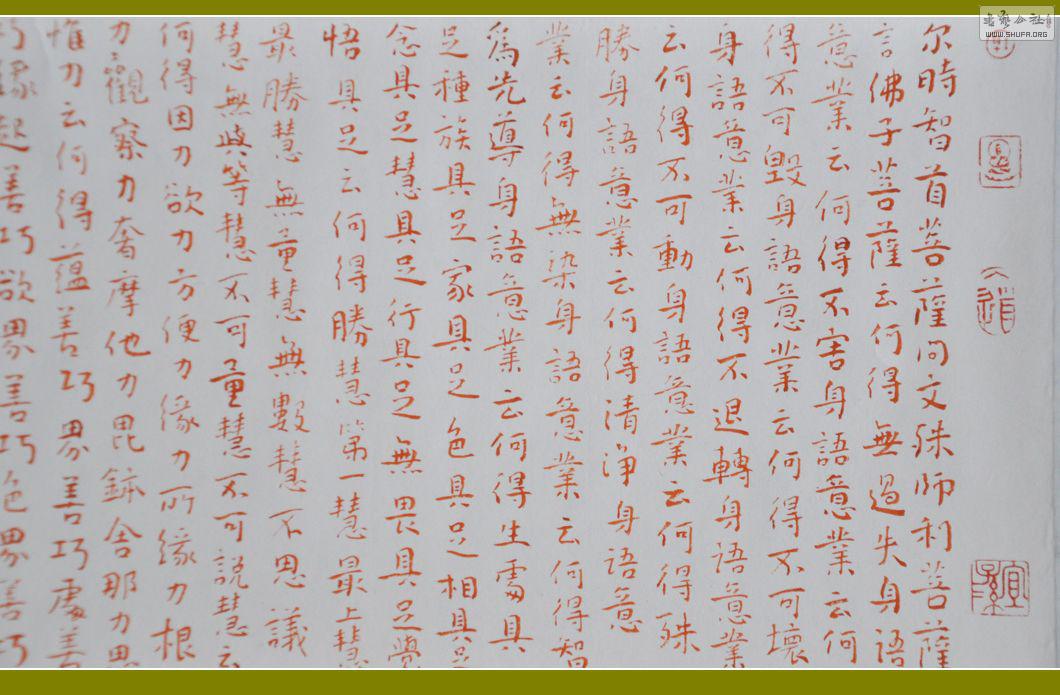 尔時智首菩薩问文殊师利菩薩
言佛子菩薩云何得無過失身语
意業云何得不害身語意業云何
得不可毀身語意業云何得不可壞
身語意業云何得不退轉身语意業
云何得不可動身語意業云何得殊
勝身語意業云何得清淨身语意
業云何得無染身語意業云何得智
爲先導身語意業云何得生處具
足種族具足家具足色具足相具足
念具足慧具足行具足無畏具足覺
悟具足云何得勝慧第一慧最上慧
最勝慧無量慧無數慧不思議
慧無與等慧不可量慧不可説慧云
何得因力欲力方便力缘力所缘力根
力觀察力奢摩他力毘鉢舍那力思
惟力云何得蕴善巧界善巧處善
巧緣起善巧欲界善巧色界善巧
WWW.SHUFA.ORG